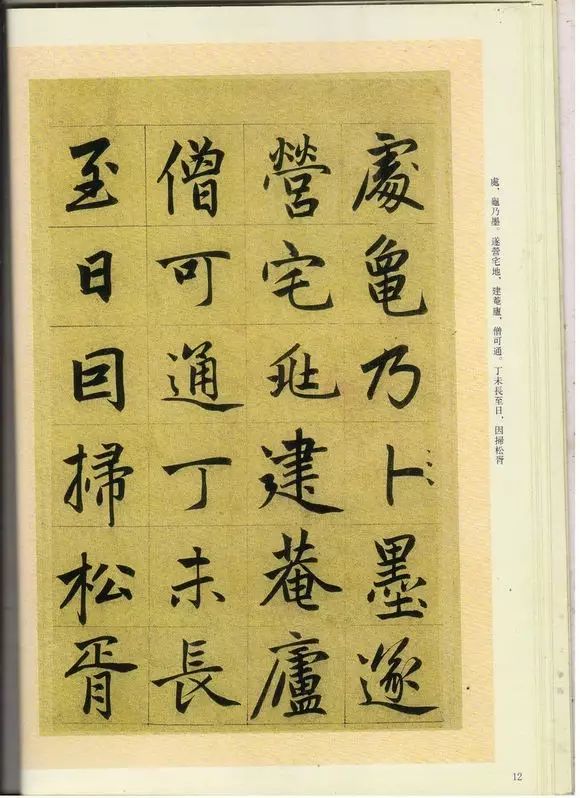 處龜乃卜墨遂
營宅地建菴廬
僧可通丁未長
至日因掃松胥
處，龜乃墨。遂營宅地，建菴廬，僧可通。丁未長至日，因掃松胥
12